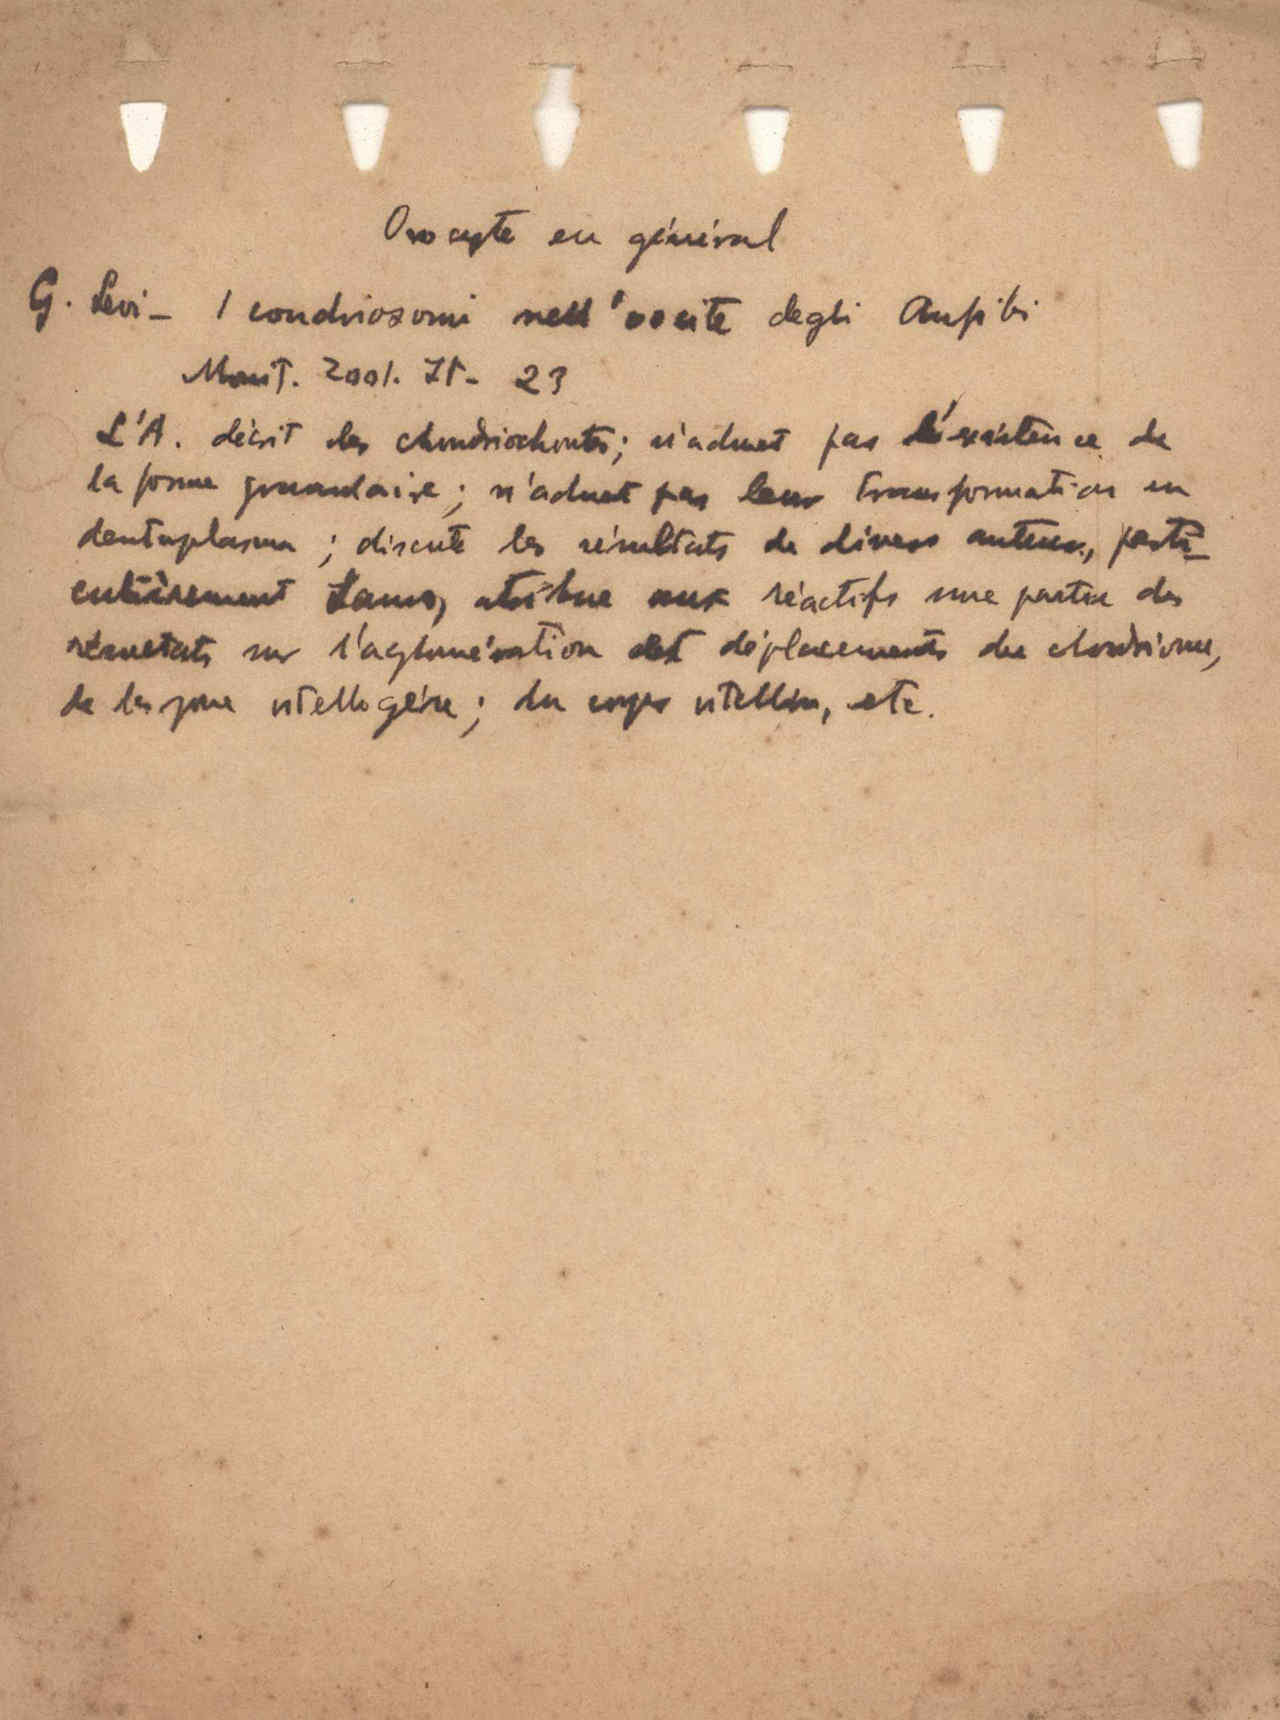 Ovocyte en général
G. Levi - I condriosomi nell'oocite degli Anfibi
Monit. Zool. It - 23
L'A. décrit les chondriochontes; n'admet pas l'existence de
la forme granulaire; n'admet pas leur transformation en
deutoplasma; discute les résultats de divers auteurs, parti-
culièrement Lams, atribue aux réactifs une partie des
résultats sur l'aglomération et déplacements du chondriome,
de la zone vitellogène; du corps vitellin, etc.